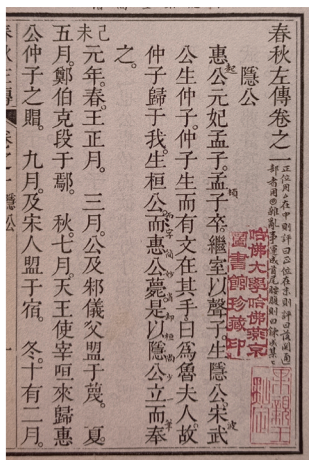 春秋左傳卷之一
隱公
惠公元妃孟子。孟子卒。繼室以聲子。生隱公。宋武
公生仲子。仲子生而有文在其手。曰爲魯夫人。故
仲子歸于我。生桓公而惠公薨。是以隱公立而奉
之。
己未
元年。春。王正月。 三月。公及邾儀父盟于蔑。 夏。
五月。鄭伯克段于鄢。 秋。七月。天王使宰咺來歸惠
公仲子之賵。 九月。及宋人盟于宿。 冬。十有二月。
春秋左傳 卷之一 隱公
哈佛大學哈佛燕京
圖書館珍藏印